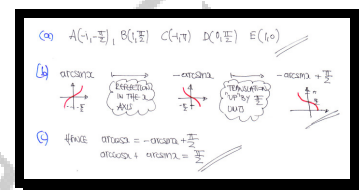 (a) A(-1,-π/2), B(1,π/2) C(-1,π) D(0,π/2) E(1,0)
(b) arcsinx ⟼ -arcsinx ⟼ -arcsinx + π/2
REFLECTION IN THE x AXIS
TRANSLATION "UP" BY π/2 UNITS
(c) HENCE arccosx = -arcsinx + π/2
arccosx + arcsinx = π/2